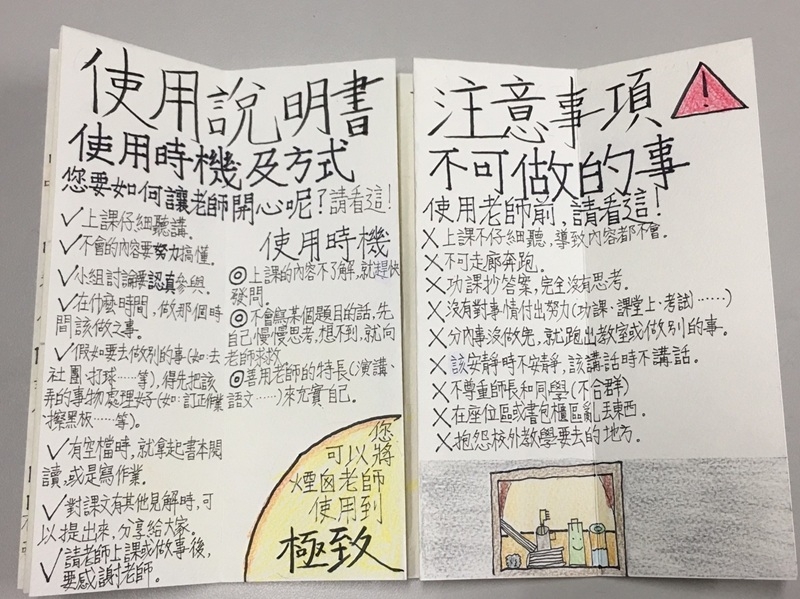 使用說明書
使用時機及方式
您要如何讓老師開心呢?請看這!
✓上課仔細聽講。
✓不會的內容要努力搞懂。
✓小組討論要認真參與。
✓在什麼時間,做那個時
間該做之事。
✓假如要去做別的事(如:去
社團、打球……等),得先把該
弄的事物處理好(如:訂正作業
、擦黑板……等)。
✓有空檔時,就拿起書本閱
讀,或是寫作業。
✓對課文有其他見解時,可
以提出來,分享給大家。
✓請老師上課或做事後,
要感謝老師。
使用時機
◎上課的內容不了解,就趕快
發問。
◎不會寫某個題目的話,先
自己慢慢思考,想不到,就向
老師求救
◎善用老師的特長(演講、
語文……)來充實自己。
您
可以將
煙囪老師
使用到
極致
注意事項
!
不可做的事
使用老師前,請看這!
✕上課不仔細聽,導致內容都不會。
✕不可走廊奔跑。
✕功課抄答案,完全沒有思考。
✕沒有對事情付出努力(功課、課堂上、考試)……)
✕分內事沒做完,就跑出教室或做別的事。
✕該安靜時不安靜,該講話時不講話。
✕不尊重師長和同學(不合群)
✕在座位區或書包櫃區亂丟東西。
✕抱怨校外教學要去的地方。